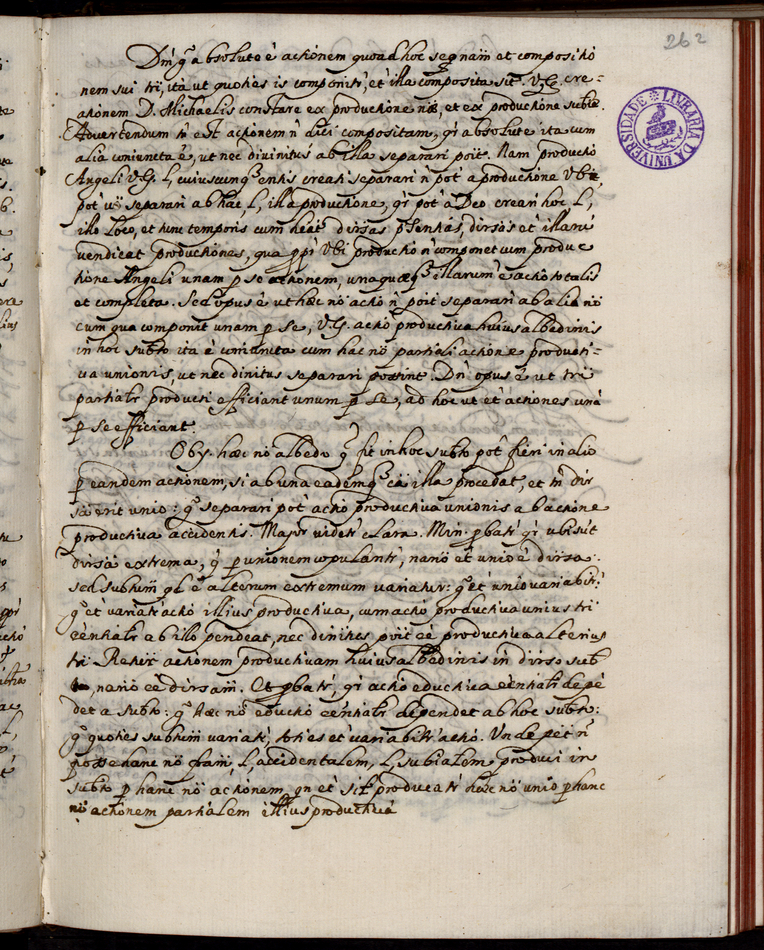 262
LIVRARIA DA UNIVERSIDADE
Dnī q̄ absolute ē actionem quoad hoc segnari et compositio
nem sui tri, ita ut quoties is componitr, et illa composita sit V.G. cre-
ationem D. Michaelis constare ex productione næ, et ex productione subiæ.
Advertendum tn̄ est actionem n̄ dici compositam, qr̄ absolute ita cum
alia coniuncta ē, ut nec divinitus ab illa separari poit. Nam productio
Angeli V.G. l, cuiuscunq̄ entis creati separari n̄ pot a productione Ubi,
pot separari ab hac, l, illa productione, qr̄ pot a Deo creari hoc l,
illo loco, et tunc temporis cum heat dirsas pstentias, dirsas et illarū
vendicat productiones, qua ppr̄ Ubi productio n̄ componet cum produc
tione Angeli unam p se actionem, unaquæq̄ illarum ē actio totalis
et completa. Sed opus ē ut hæc nō actio n̄ poit separari ab alia nō
cum qua componit unam p se, V.G. actio productiva huius albedinis
in hoc subto ita ē coniuncta cum hac nō partiali actione producti-
va unionis, ut nec dinitus separari possint. Dn̄ opus ē ut tri
partialr producti efficiant unum p se, ad hoc ut et actiones unā
p se efficiant.
Obj. hæc nō albedo q̄ fit in hoc subto pot fieri in alio
p eandem actionem, si ab una eademq̄ cā illa procedat, et tn̄ dir
sa erit unio: q̄ separari pot actio productiva unionis ab actione
productiva accidentis. Major videtr clara. Min. pbatr qr̄ ubi sūt
dirsa extrema, q̄ p unionem copulantr, nanō et unio ē dirsa.
sed subtum ql ē alterum extremum variatur: q̄ et unio variabitr:
q̄ et variatr actio illius productiva, cum actio productiva unius tri
eentialr ab illo pendeat, nec dinites poit eē productiva alterius
tri. actionem productivam huius albedinis in dirso sub
to, nanō eē dirsam. Et pbatr, qr̄ actio eductiva eentialr depē
det a subto: q̄ Hæc nō eductio eentialr dependet ab hoc subto:
q̄ quoties subtum variatr, toties et variabitr actio. Unde n̄
posse hanc nō fram l, accidentalem, l, subialem produci in
subto p hanc nō actionem, qn et sit producatr hæc nō unio p hanc
nō actionem partialem illius productivā